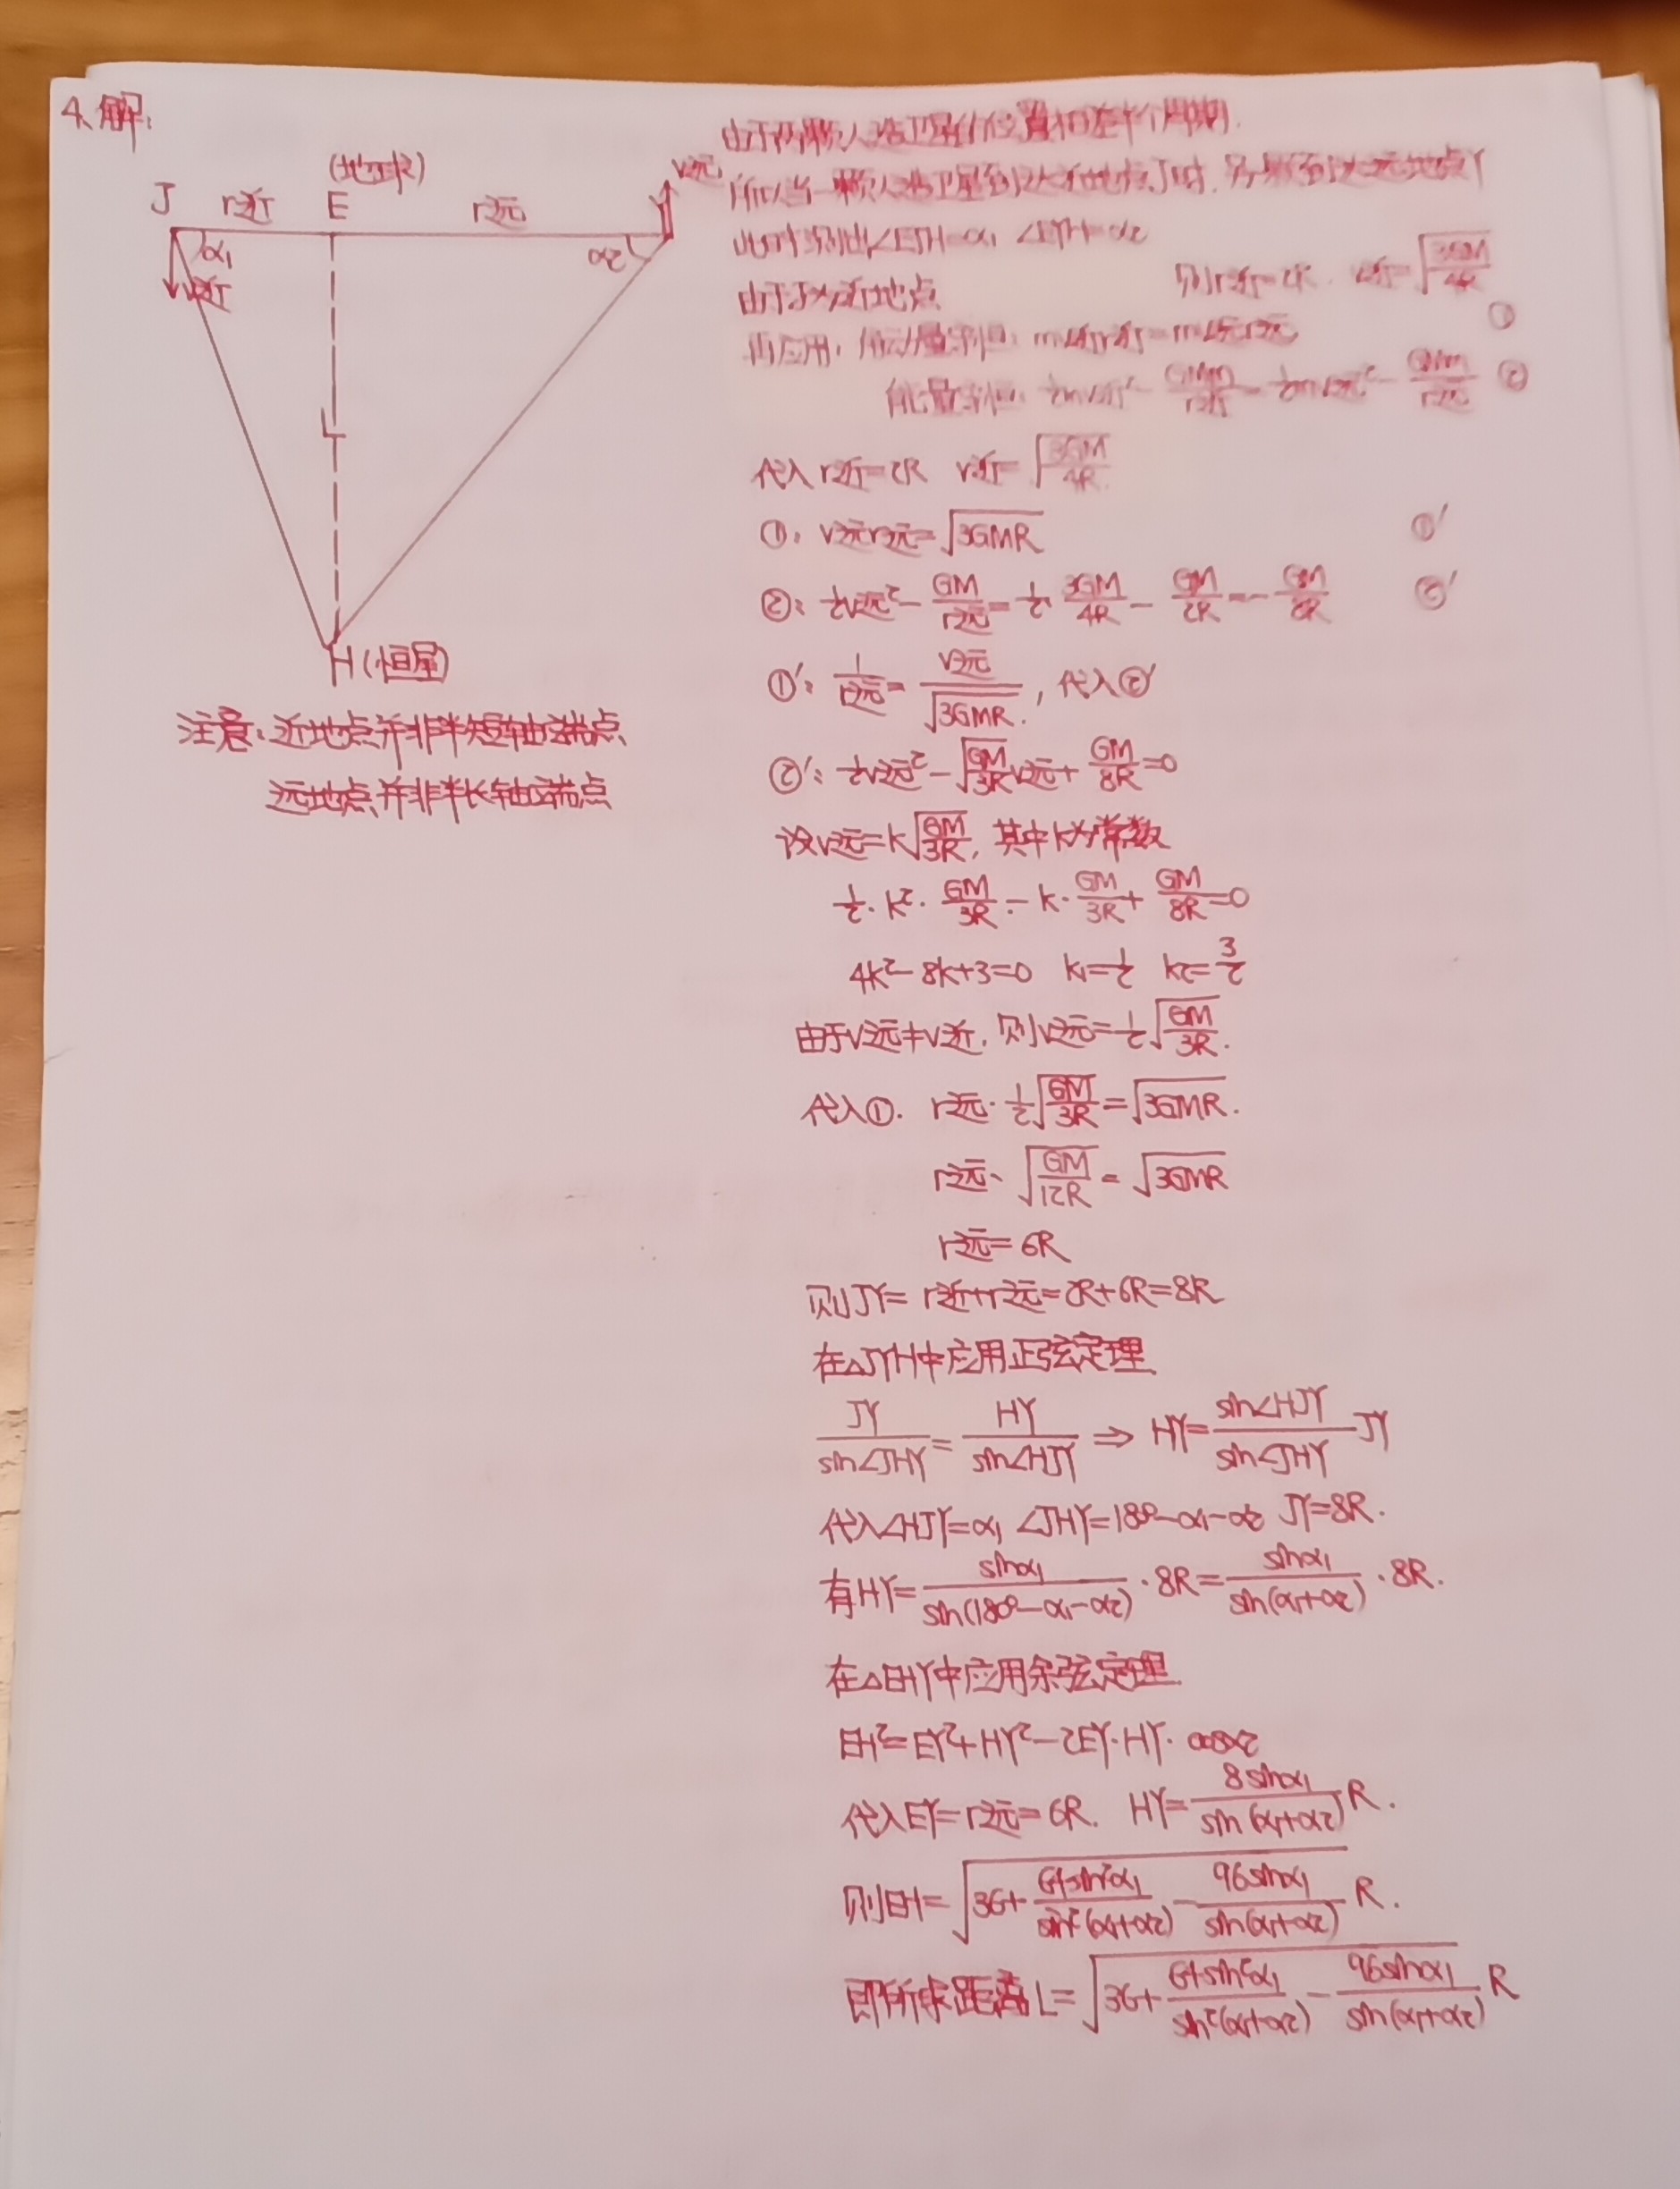 4、解:
(地球)
J r近 E r远 Y v远
α1 α2
v近
L
H(恒星)
注意:近地点并非半短轴端点
远地点并非半长轴端点
由于两颗人造卫星的位置相差半个周期.
所以当一颗人造卫星到达近地点J时,另一颗到达远地点Y
此时测出∠EJH=α1 ∠EYH=α2
由于J为近地点 则r近=2R. v近=√(3GM/4R)
再应用:角动量守恒:mv近r近=mv远r远 ①
能量守恒:½mv近²-GMm/r近=½mv远²-GMm/r远 ②
代入r近=2R v近=√(3GM/4R)
①:v远r远=√(3GMR) ①'
②:½v远²-GM/r远=½·3GM/4R-GM/2R=-GM/8R ②'
①':1/r远=v远/√(3GMR),代入②'
②':½v远²-√(GM/3R)v远+GM/8R=0
设v远=k√(GM/3R),其中k为常数
½·k²·GM/3R-k·GM/3R+GM/8R=0
4k²-8k+3=0 k1=½ k2=3/2
由于v远≠v近,则v远=½√(GM/3R).
代入①. r远·½√(GM/3R)=√(3GMR).
r远·√(GM/12R)=√(3GMR)
r远=6R
则JY=r近+r远=2R+6R=8R
在△JYH中应用正弦定理
JY/sin∠JHY=HY/sin∠HJY⇒HY=sin∠HJY/sin∠JHY JY
代入∠HJY=α1 ∠JHY=180°-α1-α2 JY=8R.
有HY=sinα1/sin(180°-α1-α2)·8R=sinα1/sin(α1+α2)·8R.
在△EHY中应用余弦定理
EH²=EY²+HY²-2EY·HY·cosα2
代入EY=r远=6R. HY=8sinα1/sin(α1+α2)R.
则EH=√(36+64sin²α1/sin²(α1+α2)-96sinα1/sin(α1+α2))R.
即所求距离L=√(36+64sin²α1/sin²(α1+α2)-96sinα1/sin(α1+α2))R